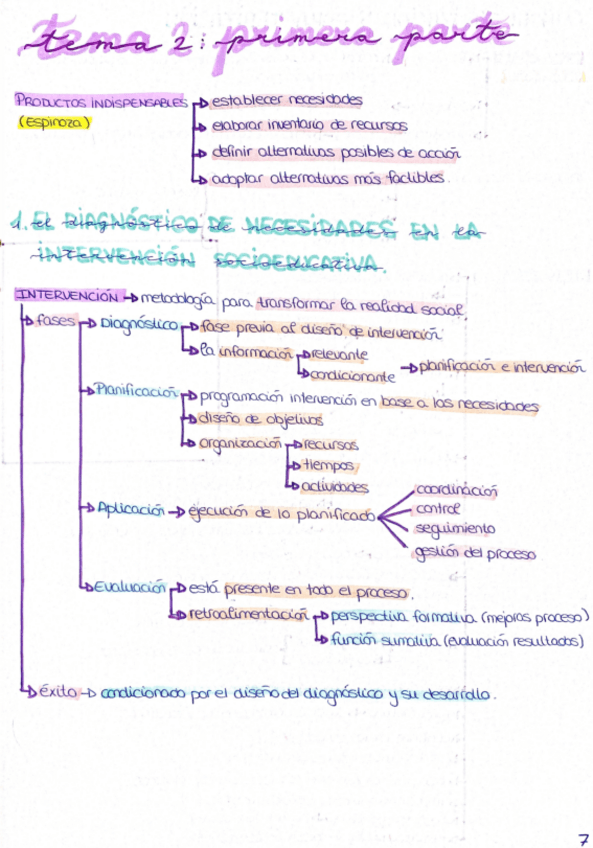 tema 2: primera parte
PRODUCTOS INDISPENSABLES → establecer necesidades
(Espinoza) → elaborar inventario de recursos
→ definir alternativas posibles de acción
→ adoptar alternativas más factibles.
1. EL DIAGNÓSTICO DE NECESIDADES EN LA
INTERVENCIÓN SOCIOEDUCATIVA.
INTERVENCIÓN → metodología para transformar la realidad social.
→ fases → Diagnóstico → fase previa al diseño de intervención
→ la información → relevante
→ condicionante → planificación e intervención
→ Planificación → programación intervención en base a las necesidades
→ diseño de objetivos
→ organización → recursos
→ tiempos
→ actividades
→ Aplicación → ejecución de lo planificado
coordinación
control
seguimiento
gestión del proceso
→ Evaluación → está presente en todo el proceso.
→ retroalimentación → perspectiva formativa (mejoras proceso)
→ función sumativa (evaluación resultados)
→ éxito → condicionado por el diseño del diagnóstico y su desarrollo.
7